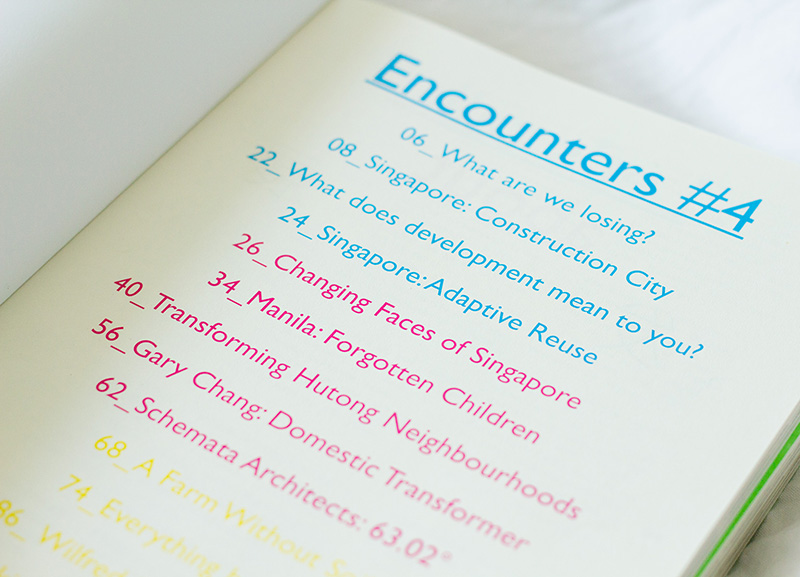 Encounters #4
06_ What are we losing?
08_Singapore: Construction City
22_ What does development mean to you?
24_Singapore: Adaptive Reuse
26_ Changing Faces of Singapore
34_ Manila: Forgotten Children
40_ Transforming Hutong Neighbourhoods
56_ Gary Chang: Domestic Transformer
62_ Schemata Architects: 63.02°
68_A Farm Without
74_Everything
86_ Wilfred